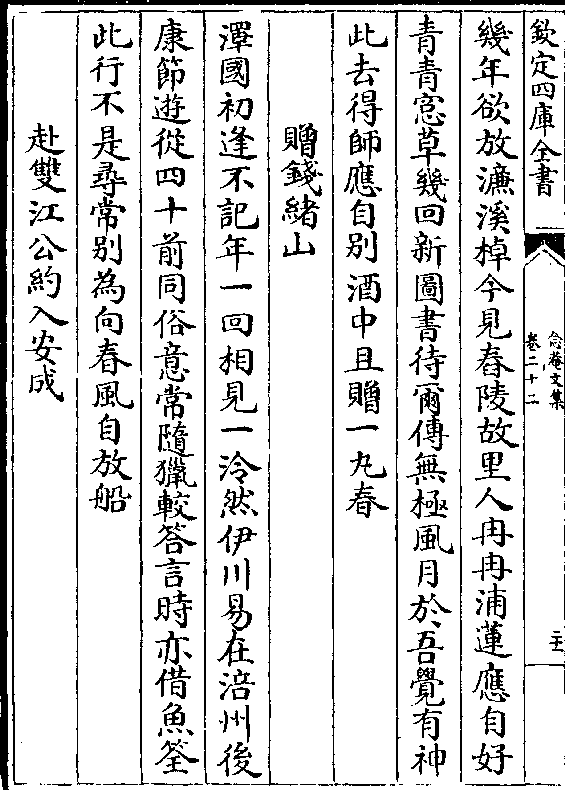 欽定四庫全書
念菴文集
卷二十二
二十一
幾年欲放濂溪棹今見舂陵故里人冉冉浦蓮應自好
青青窓草幾回新圖書待爾傳無極風月於吾覺有神
此去得師應自别酒中且贈一丸春
贈錢緒山
澤國初逢不記年一回相見一泠然伊川易在涪州後
康節遊從四十前同俗意常隨獵較答言時亦借魚筌
此行不是尋常别為向春風自放船
赴雙江公約入安成